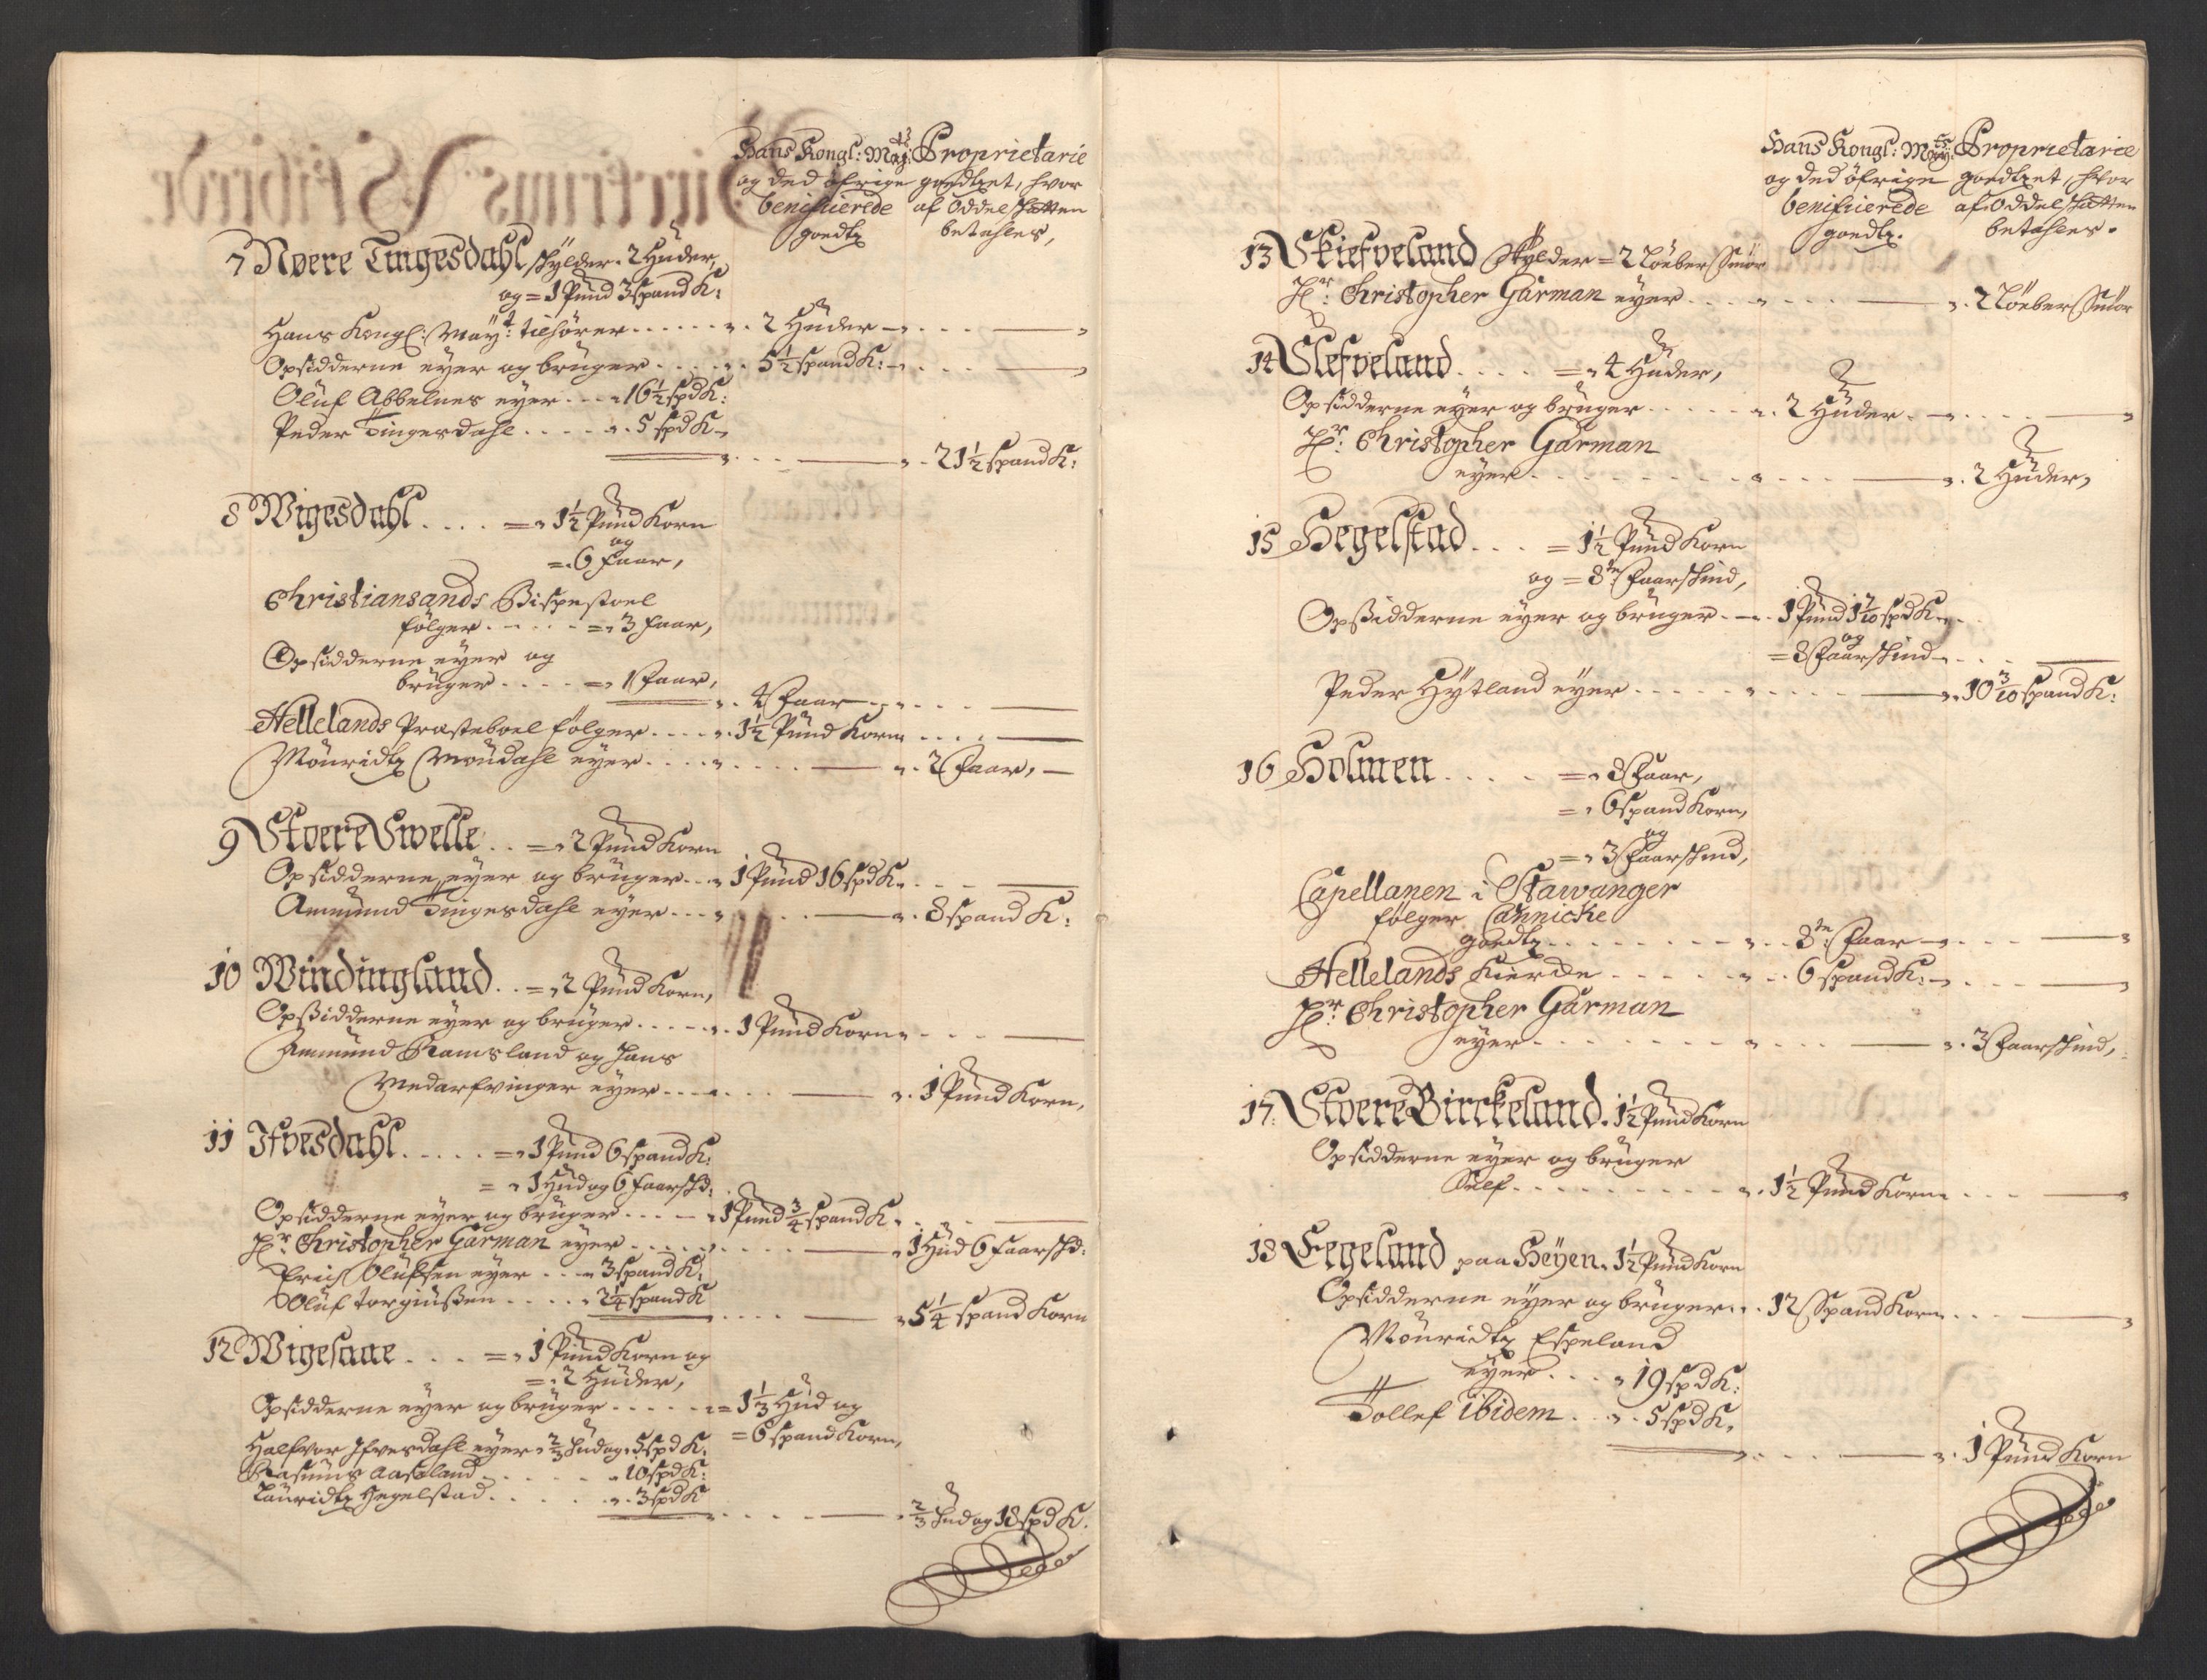 Hans Kongl: May:ts Proprietarie
og ded öfrige goedtzet, hvor
benificerede af Oddelschatten
goedtz betahles,
7 Noere Tingesdahl schylder = 2 Hüder,
og = 1 Pund 3 spand K:
Hans Kongl: May:t tilhörer . . . . . . 2 Hüder
Opsidderne eyer og brüger . . . . 5½ spand K:
Olüf Abbelnes eyer . . . 16½ spd K:
Peder Tingesdahl . . . . . 5 spd K
21½ spand K:
8 Wigesdahl . . . . = 1½ Pünd Korn
og
= 6 Faar,
Christiansands Bispestoel
fölger . . . . . = 3 Faar,
Opsidderne eyer og
brüger . . . . = 1 Faar,
4 Faar
Hellelands Præsteboel fölger . . . . 1½ Pünd Korn
Möuridtz Moudahl eyer . . . . 2 Faar,
9 Stoere Swelle . . = 2 Pünd Korn
Opsidderne eyer og brüger . . . 1 Pünd 16 spd K
Ammünd Tingesdahl eyer . . . 8 spand K:
10 Windingland . . = 2 Pünd Korn,
Opsidderne eyer og brüger . . . . . 1 Pünd Korn
Ammünd Ramsland og Hans
Medarfvinger eyer . . . . 1 Pünd Korn,
11 Ifvesdahl . . . . . = 1 Pünd 6 spand K:
= 1 Hüd og 6 faarschd:
Opsidderne eyer og brüger . . . . 1 Pünd ¾ spand K
Hr: Christopher Garman eyer . . . . . 1 Hüd 6 faarschd:
Erich Olüfsen eyer . . . 3 spand K:
Olüf Torgiüssen . . . . . 2¼ spand K
5¼ spand Korn
12 Wigesaae . . . . = 1 Pünd Korn og
= 2 Hüder,
Opsidderne eyer og brüger . . . . . = 1⅓ Hüd og
= 6 spand Korn,
Halfvor Ifvesdahl eyer ⅔ Hüd og 5 spd K.
Rasmüs Aaseland . . . . . 10 spd K:
Laüridtz Hegelstad . . . . . 3 spd K
⅔ Hüd og 18 spd K.
Hans Kongl: May:ts Proprietarie
og ded öfrige goedtzet, hvor
benificerede af Oddelschatten
goedtz. betahles.
13 Skiefveland Schylder = 2 Löeber Smör
Hr: Christopher Garman eyer . . . . 2 Löeber Smör
14 Slefveland . . . . = 4 Hüder,
Opsidderne eyer og brüger . . . . . 2 Hüder
Hr: Christopher Garman
eyer . . . . . . . . . 2 Hüder,
15 Hegelstad . . . = 1½ Pünd Korn
og = 8te Faarschind,
Opsidderne eyer og brüger . . 1 Pünd 1 7/10 spd K
og
= 8 Faarschind
Peder Hÿtland eyer . . . . . 10 3/10 spand K:
16 Holmen . . . . = 8 Faar,
= 6 spand Korn,
og
= 3 Faarschind,
Capellanen i Stawanger
fölger Cannicke
goedtz . . . . . . . . 8te Faar
Hellelands Kierche . . . . . 6 spand K:
Hr: Christopher Garman
eyer . . . . . . . . 3 Faarschind,
17. Stoere Birckeland. 1½ Pünd Korn
Opsidderne eyer og brüger
Self . . . . . . . . . 1½ Pünd Korn
18 Eegeland paa Heÿen. 1½ Pünd Korn
Opsidderne eyer og brüger . . 12 Spand Korn
Möuridtz Espeland
eyer . . . . 19 spd K:
Tollef ibidem . . . 5 spd K,
1 Pünd Korn